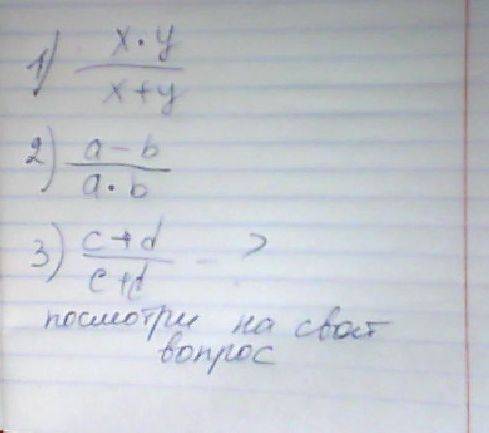 1) x·y
x+y
2) a-b
a·b
3) c+d
c+d
посмотри на свой
вопрос